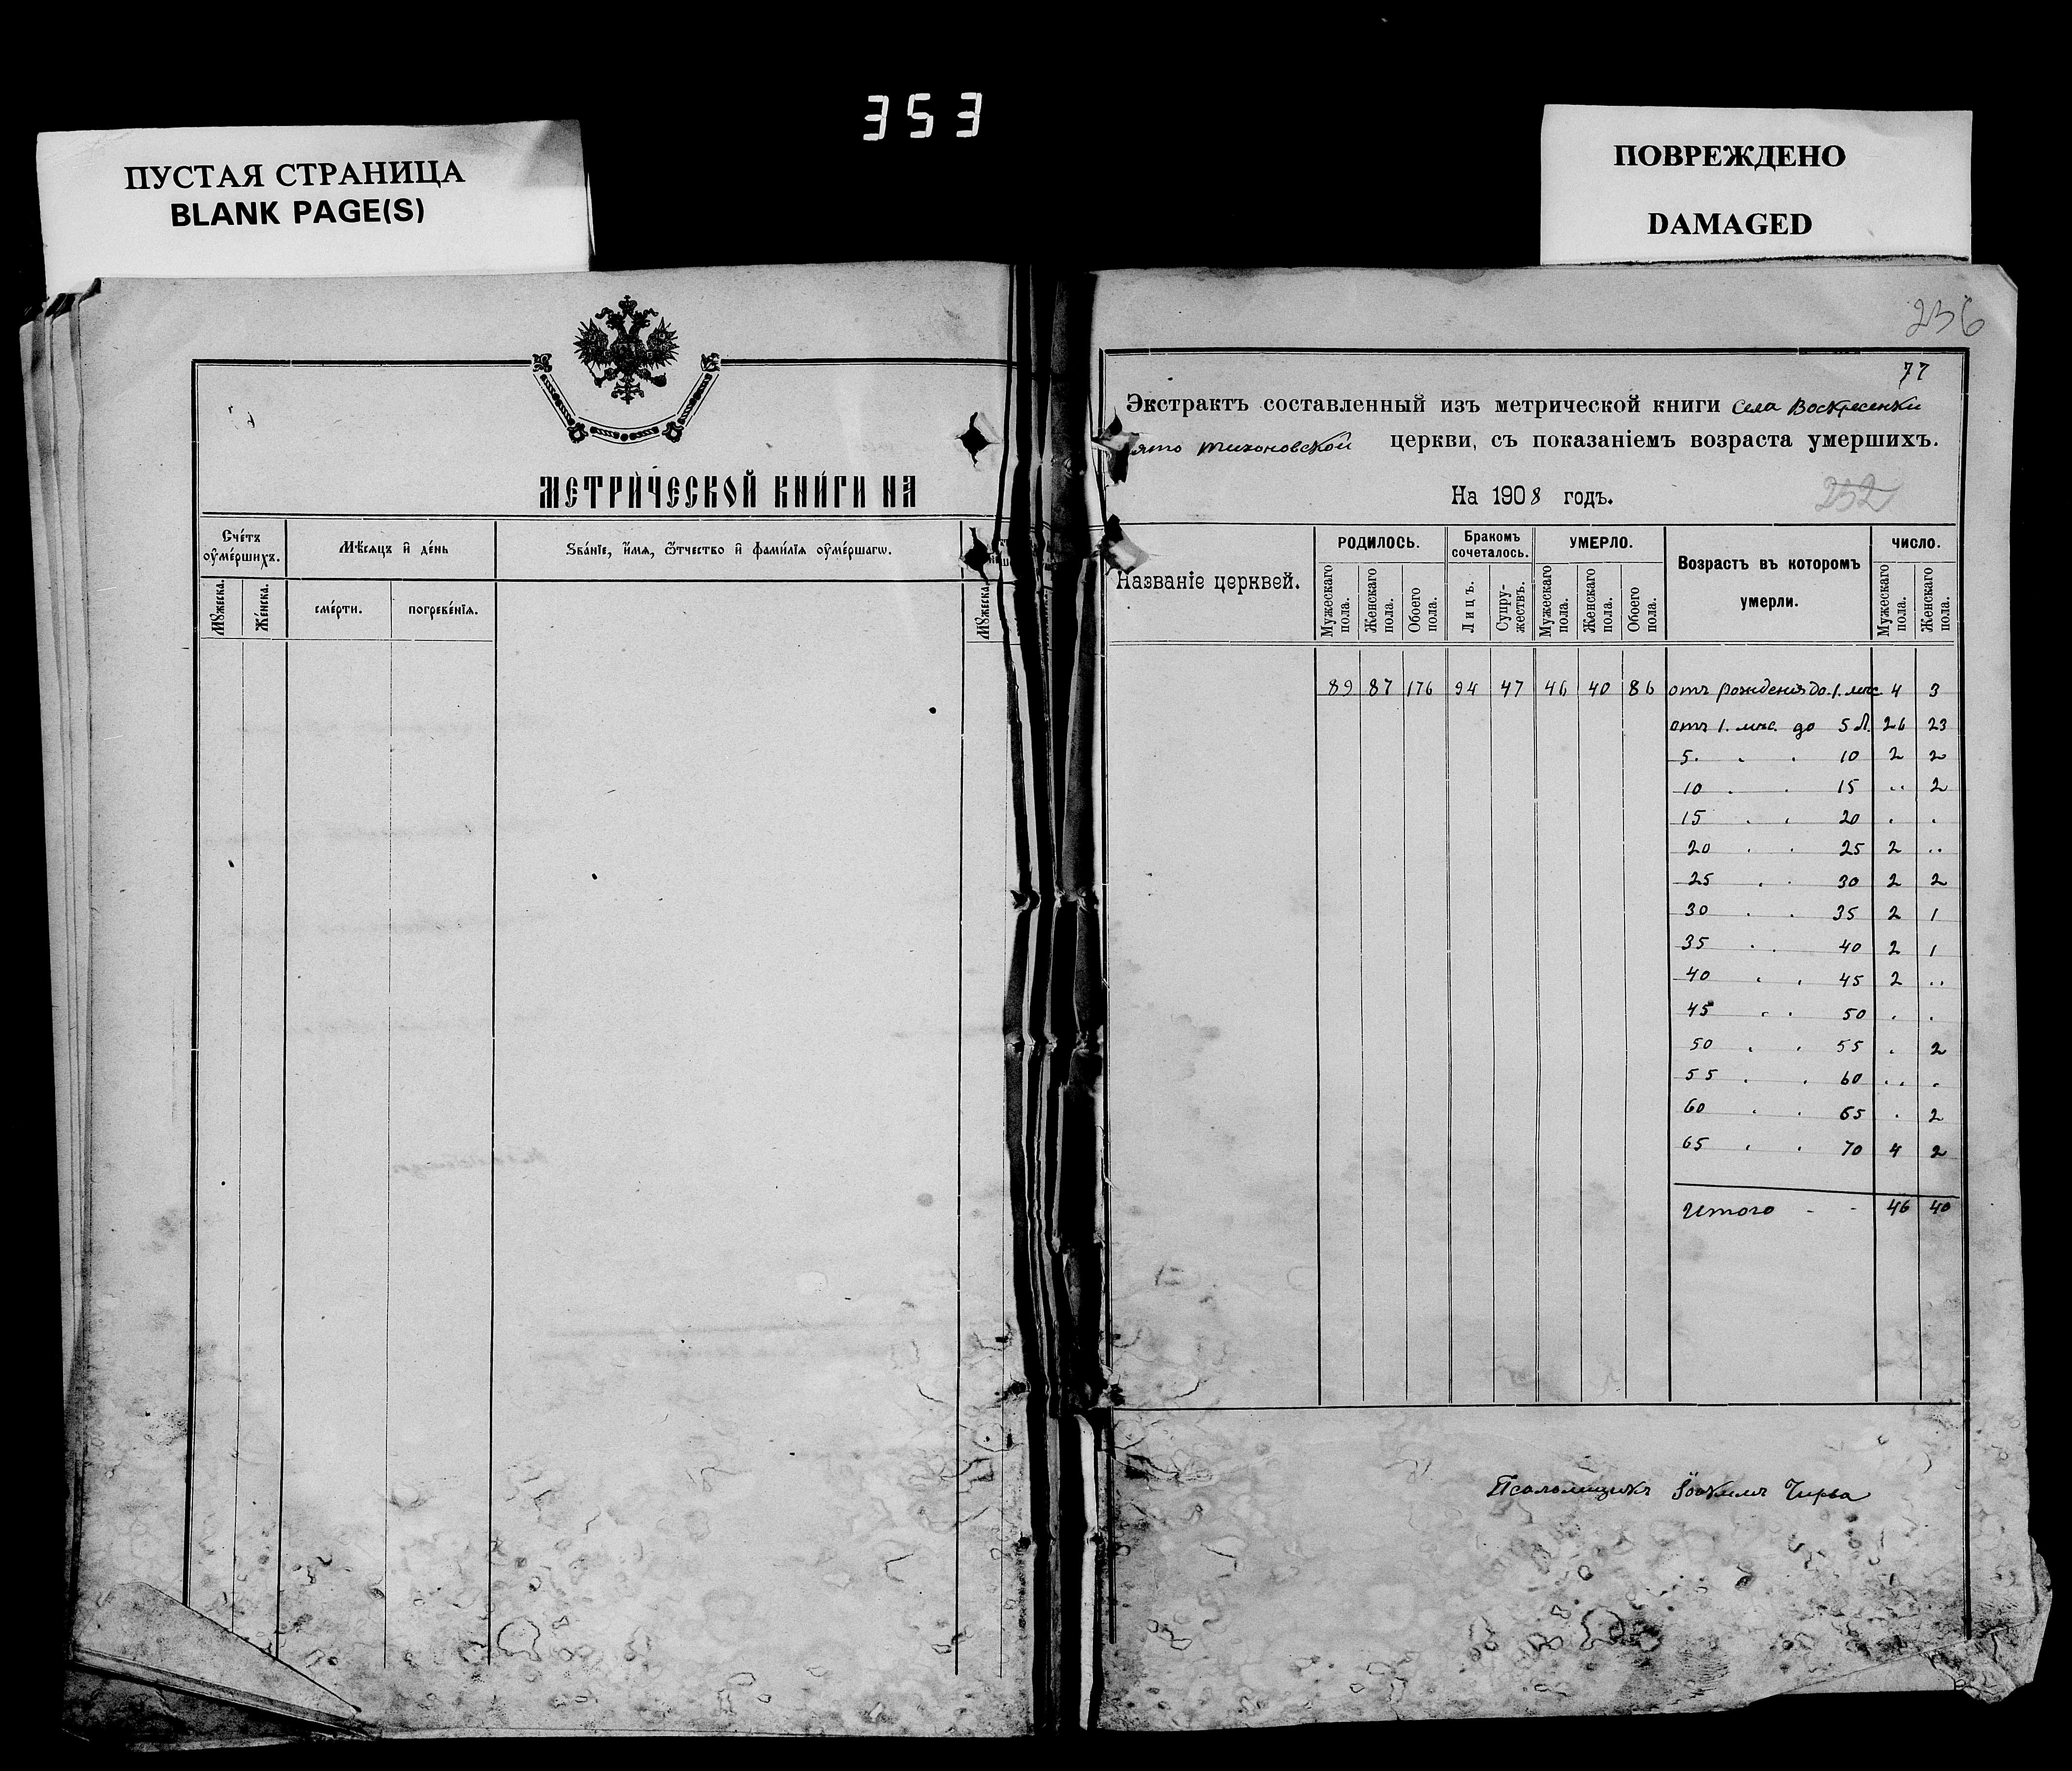 353
ПУСТАЯ СТРАНИЦА
BLANK PAGE(S)
ПОВРЕЖДЕНО
DAMAGED
МЕТРИ́ЧЕСКОЙ КНИ́ГИ НА
Сче́тъ оуме́ршихъ.
Мѣ́сяцъ и де́нь
Зва́нїе, и́мя, ѻ́тчество и фами́лїя оуме́ршагѡ.
Мꙋ́жеска.
Же́нска.
сме́рти.
погребе́нїя.
Мꙋ́жеска.
236
77
Экстрактъ составленный изъ метрической книги села Воскресенки
ято Тихоновской церкви, съ показаніемъ возраста умершихъ.
На 1908 годъ.
232
Названіе церквей.
РОДИЛОСЬ.
Бракомъ сочеталось.
УМЕРЛО.
Возрастъ въ которомъ умерли.
ЧИСЛО.
Мужескаго пола.
Женскаго пола.
Обоего пола.
Лицъ.
Супружествъ.
Мужескаго пола.
Женскаго пола.
Обоего пола.
Мужескаго пола.
Женскаго пола.
89 87 176 94 47 46 40 86 отъ рожденія до 1. мѣс. 4 3
отъ 1. мѣс. до 5 л. 26 23
5 10 2 2
10 15 " 2
15 20 " "
20 25 2 "
25 30 2 2
30 35 2 1
35 40 2 1
40 45 2 "
45 50 " "
50 55 " 2
55 60 " "
60 65 " 2
65 70 4 2
Итого - - 46 40
Псаломщикъ Іоакимъ Чирва